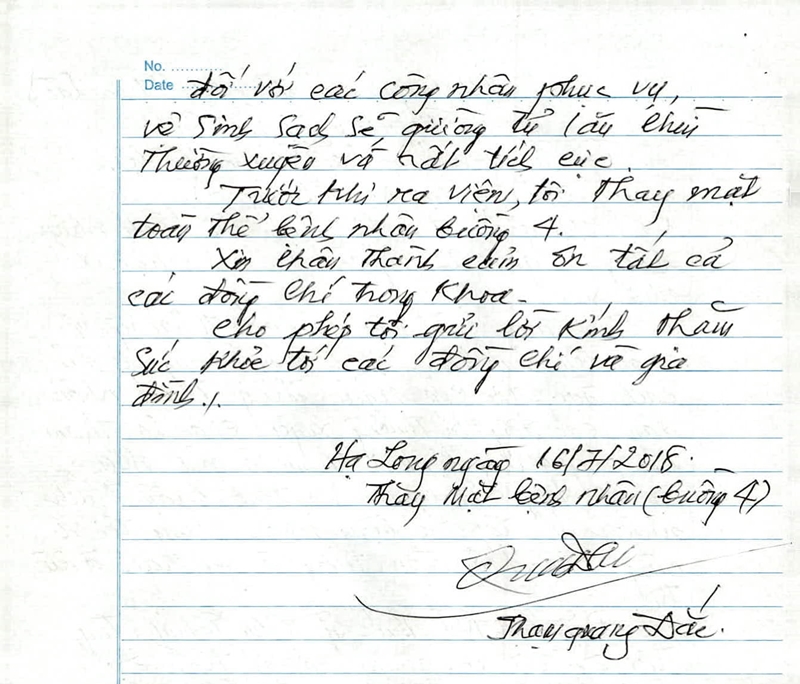 No. ............
Date ............
đối với các công nhân phục vụ,
vệ sinh sạch sẽ giường tủ lau chùi
thường xuyên và rất tích cực.
Trước khi ra viện, tôi thay mặt
toàn thể bệnh nhân buồng 4.
Xin chân thành cảm ơn tất cả
các đồng chí trong khoa.
Cho phép tôi gửi lời kính thăm
sức khỏe tới các đồng chí và gia
đình./.
Hạ Long ngày 16/7/2018.
Thay mặt bệnh nhân (buồng 4)
quang Đắc.